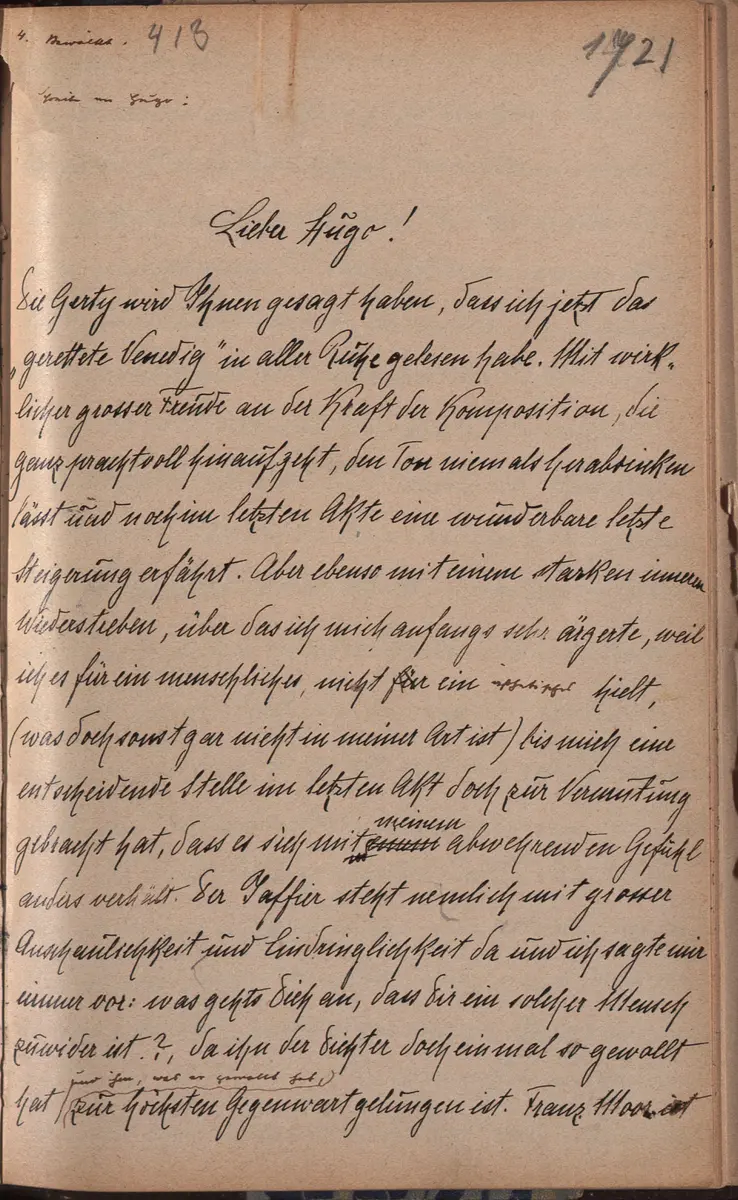 4. 413 1721
an Hugo:
Lieber Hugo!
Die Gerty wird Ihnen gesagt haben, dass ich jetzt das
„gerettete Venedig" in aller Ruhe gelesen habe. Mit wirk-
licher grosser Freude an der Kraft der Komposition, die
ganz prachtvoll hinaufgeht, den Ton niemals herabsinken
lässt und noch im letzten Akte eine wunderbare letzte
Steigerung erfährt. Aber ebenso mit einem starken inneren
Wiederstreben, über das ich mich anfangs sehr ärgerte, weil
ich es für ein menschliches, nicht für ein hielt,
(was doch sonst gar nicht in meiner Art ist) bis mich eine
entscheidende Stelle im letzten Akt doch zur Vermutung
gebracht hat, dass es sich mit meinem abwehrenden Gefühl
anders verhält. Der Jaffier steht nemlich mit grosser
Anschaulichkeit und Eindringlichkeit da und ich sagte mir
immer vor: was gehts Dich an, dass Dir ein solcher Mensch
zuwider ist?, da ihn der Dichter doch einmal so gewollt
und ihm, was er gewollt hat,
hat zur höchsten Gegenwart gelungen ist. Franz Moor ist